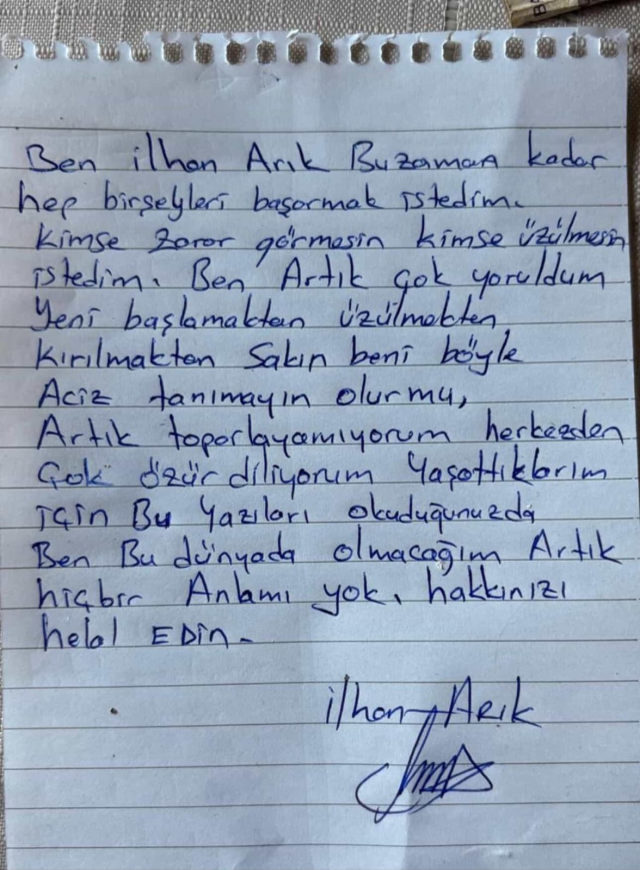 Ben ilhan Arık Bu zaman kadar
hep birşeyleri başarmak istedim.
Kimse zarar görmesin kimse üzülmesin
istedim. Ben Artık çok yoruldum
Yeni başlamaktan üzülmekten,
Kırılmaktan Sakın beni böyle
Aciz tanımayın olurmu,
Artık toparlayamıyorum herkezden
Çok özür diliyorum Yaşattıklarım
için Bu Yazıları okuduğunuzda
Ben Bu dünyada olmacağım Artık
hiçbir Anlamı yok, hakkınızı
helal EDin.
ilhan Arık